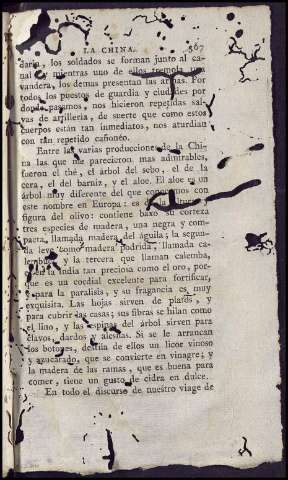 LA CHINA. 567
daria, los soldados se forman junto al ca-
y mientras uno de ellos tremola una
vandera, los demas presentan las armas. Por
todos los puestos de guardia y ciudades por
donde pasamos, nos hicieron repetidas sal-
vas de artillería, de suerte que como estos
cuerpos están tan inmediatos, nos aturdian
con tan repetido cañonéo.
Entre las varias producciones de la Chi-
na las que me parecieron mas admirables,
fueron el thé, el árbol del sebo, el de la
cera, el del barniz, y el aloe. El aloe es un
árbol muy diferente del que conocemos con
este nombre en Europa: es de la
figura del olivo: contiene baxo su corteza
tres especies de madera, una negra y com-
pacta, llamada madera del águila; la segun-
da leve como madera podrida, llamada ca-
y la tercera que llaman calemba,
en la India tan preciosa como el oro, por-
que es un cordial excelente para fortificar,
para la paralisis, y su fragrancia es muy
exquisita. Las hojas sirven de platos, y
para cubrir las casas; sus fibras se hilan como
el lino, y las espinas del árbol sirven para
clavos, dardos y alesnas. Si se le arrancan
los botones, destila de ellos un licor vinoso
y azucarado, que se convierte en vinagre; y
la madera de las ramas, que es buena para
comer, tiene un gusto de cidra en dulce.
En todo el discurso de nuestro viage de